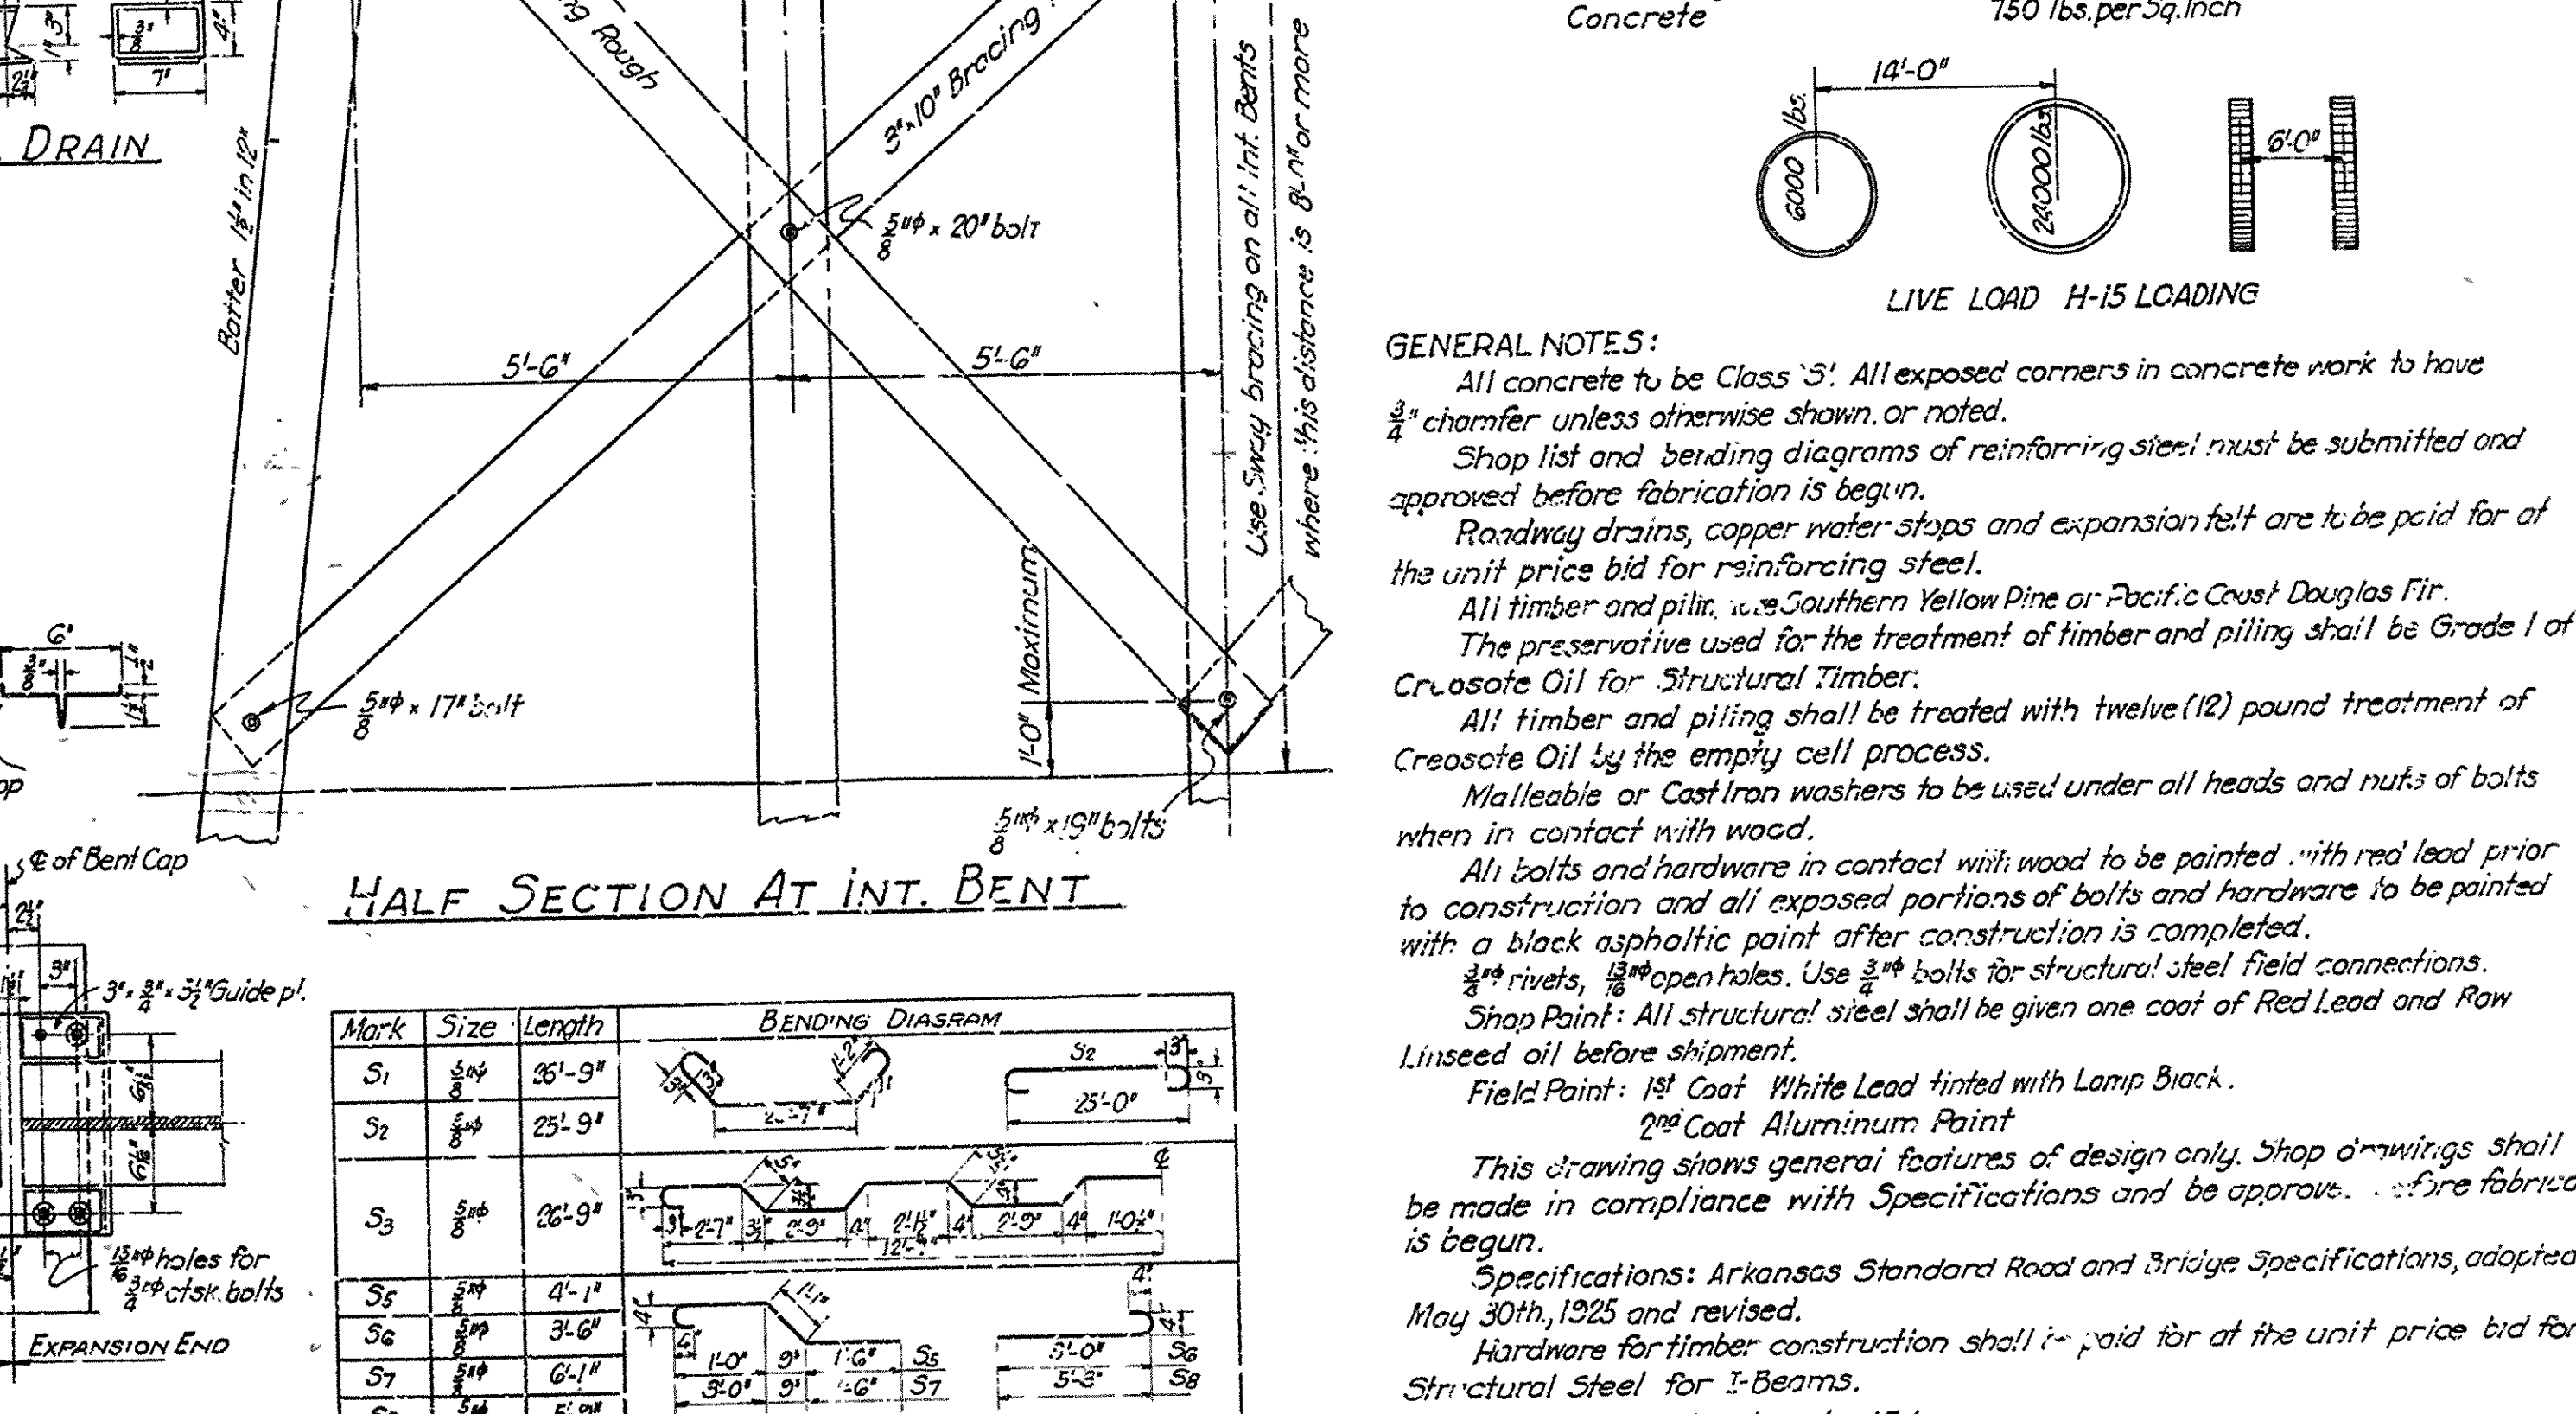 Concrete 750 lbs. per Sq. Inch
1" 3"
3/8"
4"
7"
2 1/4"
DRAIN
Batter 1 1/2" in 12"
Rough
3"x10" Bracing
5/8"ϕ x 20" bolt
5'-6" 5'-6"
Use Sway bracing on all Int. Bents
where this distance is 8'-0" or more
1'-0" Maximum
5/8"ϕ x 17" bolt
5/8"ϕ x 19" bolts
HALF SECTION AT INT. BENT
6"
3/8"
1/2"
1 1/2"
℄ of Bent Cap
2 1/2"
3"
3" x 3/4" x 3 1/2" Guide pl.
6 1/2"
6 1/2"
13/16"ϕ holes for
3/4"ϕ ctsk. bolts
EXPANSION END
Mark Size Length BENDING DIAGRAM
S1 5/8"ϕ 26'-9"
3" 3" 1'-2"
S2 5/8"ϕ 25'-9"
S2 3" 3"
25'-0"
S3 5/8"ϕ 26'-9"
3" 5" 3 1/2" 4" ℄
3" 2'-7" 3 1/2" 2'-9" 4" 2'-1 1/2" 4" 2'-9" 4" 1'-0 1/2"
S5 5/8"ϕ 4'-1"
S6 5/8"ϕ 3'-6"
S7 5/8"ϕ 6'-1"
4" 1'-1" 4" 4"
4"
1'-0" 9" 1'-6" S5
3'-0" 9" 1'-6" S7
S6
5'-3" S8
14'-0"
6000 lbs.
24000 lbs.
6'-0"
LIVE LOAD H-15 LOADING
GENERAL NOTES:
All concrete to be Class 'S'. All exposed corners in concrete work to have
3/4" chamfer unless otherwise shown. or noted.
Shop list and bending diagrams of reinforcing steel must be submitted and
approved before fabrication is begun.
Roadway drains, copper water stops and expansion felt are to be paid for at
the unit price bid for reinforcing steel.
All timber and Southern Yellow Pine or Pacific Coast Douglas Fir.
The preservative used for the treatment of timber and piling shall be Grade 1 of
Creosote Oil for Structural Timber.
All timber and piling shall be treated with twelve (12) pound treatment of
Creosote Oil by the empty cell process.
Malleable or Cast Iron washers to be used under all heads and nuts of bolts
when in contact with wood.
All bolts and hardware in contact with wood to be painted with red lead prior
to construction and all exposed portions of bolts and hardware to be painted
with a black asphaltic paint after construction is completed.
3/4"ϕ rivets, 13/16"ϕ open holes. Use 3/4"ϕ bolts for structural steel field connections.
Shop Paint: All structural steel shall be given one coat of Red Lead and Raw
Linseed oil before shipment.
Field Paint: 1st Coat White Lead tinted with Lamp Black.
2nd Coat Aluminum Paint
This drawing shows general features of design only. Shop drawings shall
be made in compliance with Specifications and be approve. before fabrica
is begun.
Specifications: Arkansas Standard Road and Bridge Specifications, adopted
May 30th., 1925 and revised.
Hardware for timber construction shall be paid for at the unit price bid for
Structural Steel for I-Beams.